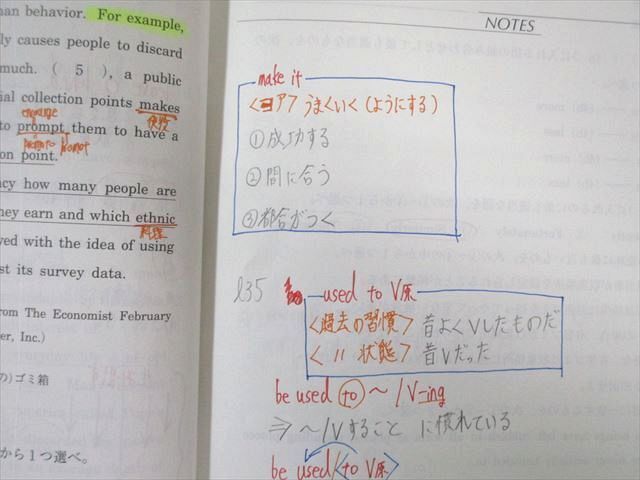 nan behavior. For example,
ly causes people to discard
much. ( 5 ), a public
ial collection points makes
to prompt them to have a
on point.
cy how many people are
hey earn and which ethnic
ved with the idea of using
st its survey data.
from The Economist February
er, Inc.)
の)ゴミ箱
から1つ選べ。
NOTES
make it
<コア> うまくいく(ようにする)
①成功する
②間に合う
③都合がつく
l35
used to V原
<過去の習慣> 昔よくVしたものだ
< 〃 状態> 昔Vだった
be used to ~/V-ing
⇒ ~/Vすること に慣れている
be used <to V原>